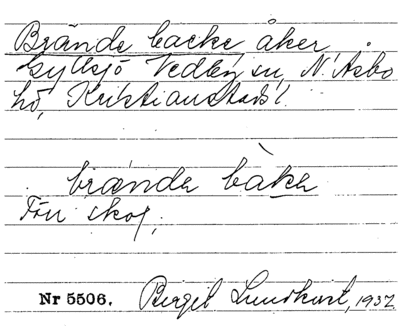 Brände backe åker.
Gyllsjö Vedby sn, N. Åsbo
hd, Kristianstads l.
brände bàka
Förr skog.
Nr 5506. Birgit Lundkvist, 1932